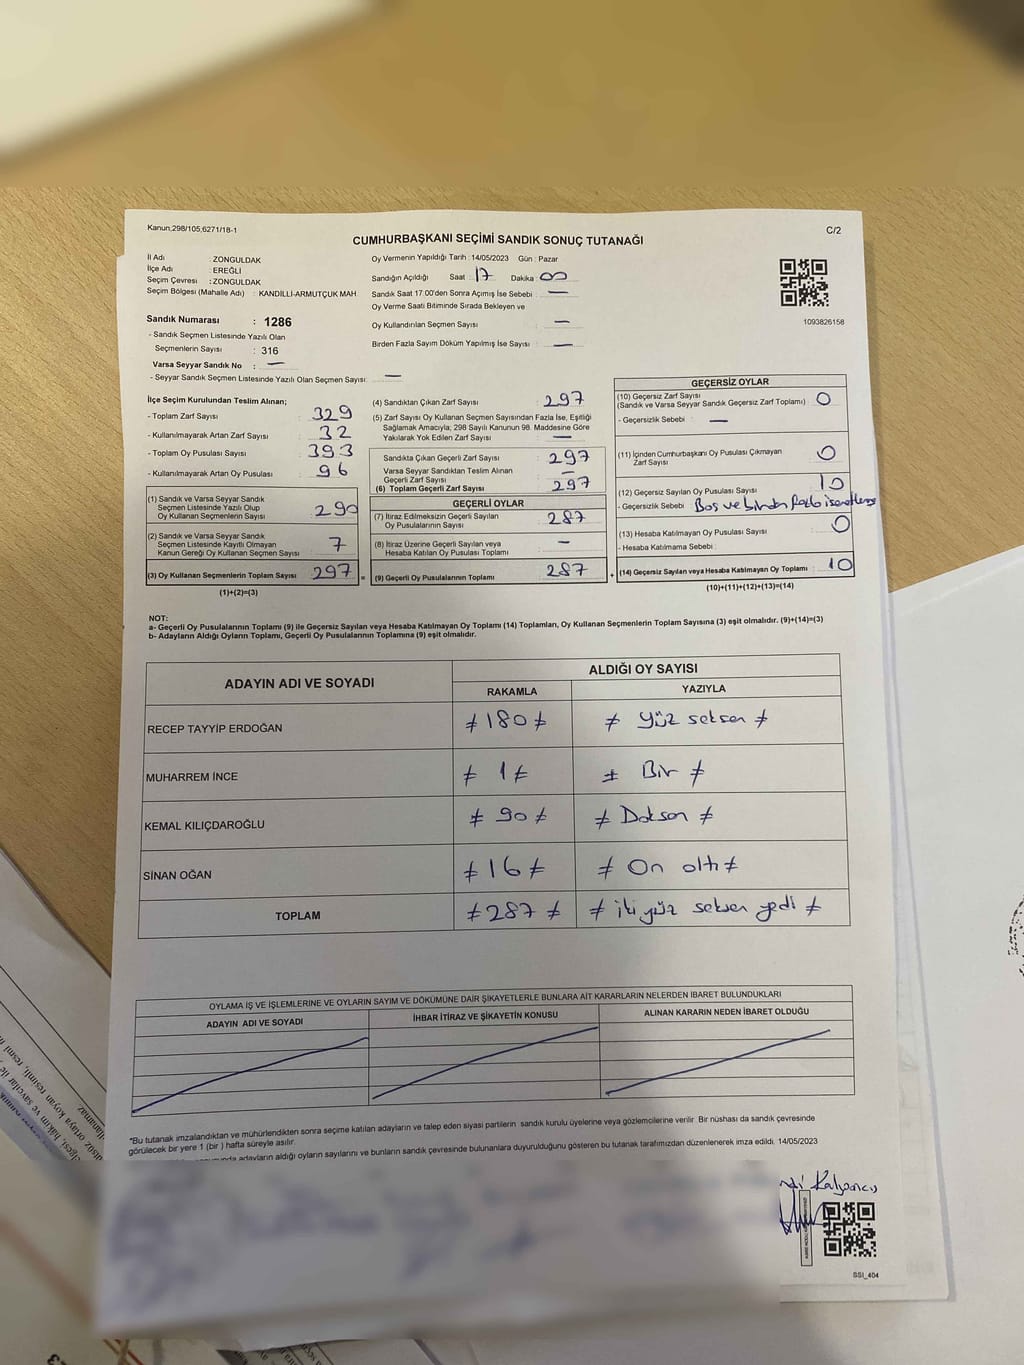 Kanun,298/105,6271/18-1
C/2
CUMHURBAŞKANI SEÇİMİ SANDIK SONUÇ TUTANAĞI
İl Adı : ZONGULDAK
İlçe Adı : EREĞLİ
Seçim Çevresi : ZONGULDAK
Seçim Bölgesi (Mahalle Adı) : KANDİLLİ-ARMUTÇUK MAH.
Sandık Numarası : 1286
- Sandık Seçmen Listesinde Yazılı Olan
Seçmenlerin Sayısı : 316
Varsa Seyyar Sandık No : —
- Seyyar Sandık Seçmen Listesinde Yazılı Olan Seçmen Sayısı: —
Oy Vermenin Yapıldığı Tarih : 14/05/2023 Gün : Pazar
Sandığın Açıldığı Saat : 17 Dakika : 00
Sandık Saat 17:00'den Sonra Açımış İse Sebebi : —
Oy Verme Saati Bitiminde Sırada Bekleyen ve
Oy Kullandırılan Seçmen Sayısı : —
Birden Fazla Sayım Döküm Yapılmış İse Sayısı : —
1093826158
İlçe Seçim Kurulundan Teslim Alınan;
- Toplam Zarf Sayısı : 329
- Kullanılmayarak Artan Zarf Sayısı : 32
- Toplam Oy Pusulası Sayısı : 393
- Kullanılmayarak Artan Oy Pusulası : 96
(1) Sandık ve Varsa Seyyar Sandık
Seçmen Listesinde Yazılı Olup
Oy Kullanan Seçmenlerin Sayısı : 290
(2) Sandık ve Varsa Seyyar Sandık
Seçmen Listesinde Kayıtlı Olmayan
Kanun Gereği Oy Kullanan Seçmen Sayısı : 7
(3) Oy Kullanan Seçmenlerin Toplam Sayısı : 297
(1)+(2)=(3)
(4) Sandıktan Çıkan Zarf Sayısı : 297
(5) Zarf Sayısı Oy Kullanan Seçmen Sayısından Fazla İse, Eşitliği
Sağlamak Amacıyla; 298 Sayılı Kanunun 98. Maddesine Göre
Yakılarak Yok Edilen Zarf Sayısı : —
Sandıkta Çıkan Geçerli Zarf Sayısı : 297
Varsa Seyyar Sandıktan Teslim Alınan
Geçerli Zarf Sayısı : —
(6) Toplam Geçerli Zarf Sayısı : 297
GEÇERLİ OYLAR
(7) İtiraz Edilmeksizin Geçerli Sayılan
Oy Pusulalarının Sayısı : 287
(8) İtiraz Üzerine Geçerli Sayılan veya
Hesaba Katılan Oy Pusulası Toplamı : —
= (9) Geçerli Oy Pusulalarının Toplamı : 287
GEÇERSİZ OYLAR
(10) Geçersiz Zarf Sayısı
(Sandık ve Varsa Seyyar Sandık Geçersiz Zarf Toplamı) : 0
- Geçersizlik Sebebi : —
(11) İçinden Cumhurbaşkanı Oy Pusulası Çıkmayan
Zarf Sayısı : 0
(12) Geçersiz Sayılan Oy Pusulası Sayısı : 10
- Geçersizlik Sebebi : Boş ve birden fazla
(13) Hesaba Katılmayan Oy Pusulası Sayısı : 0
- Hesaba Katılmama Sebebi :
+ (14) Geçersiz Sayılan veya Hesaba Katılmayan Oy Toplamı : 10
(10)+(11)+(12)+(13)=(14)
NOT:
a- Geçerli Oy Pusulalarının Toplamı (9) ile Geçersiz Sayılan veya Hesaba Katılmayan Oy Toplamı (14) Toplamları, Oy Kullanan Seçmenlerin Toplam Sayısına (3) eşit olmalıdır. (9)+(14)=(3)
b- Adayların Aldığı Oyların Toplamı, Geçerli Oy Pusulalarının Toplamına (9) eşit olmalıdır.
ADAYIN ADI VE SOYADI
ALDIĞI OY SAYISI
RAKAMLA YAZIYLA
RECEP TAYYİP ERDOĞAN ≠ 180 ≠ ≠ Yüz seksen ≠
MUHARREM İNCE ≠ 1 ≠ ≠ Bir ≠
KEMAL KILIÇDAROĞLU ≠ 90 ≠ ≠ Doksan ≠
SİNAN OĞAN ≠ 16 ≠ ≠ On altı ≠
TOPLAM ≠ 287 ≠ ≠ iki yüz seksen yedi ≠
OYLAMA İŞ VE İŞLEMLERİNE VE OYLARIN SAYIM VE DÖKÜMÜNE DAİR ŞİKAYETLERLE BUNLARA AİT KARARLARIN NELERDEN İBARET BULUNDUKLARI
ADAYIN ADI VE SOYADI İHBAR İTİRAZ VE ŞİKAYETİN KONUSU ALINAN KARARIN NEDEN İBARET OLDUĞU
*Bu tutanak imzalandıktan ve mühürlendikten sonra seçime katılan adayların ve talep eden siyasi partilerin sandık kurulu üyelerine veya gözlemcilerine verilir. Bir nüshası da sandık çevresinde
görülecek bir yere 1 (bir ) hafta süreyle asılır.
adayların aldığı oyların sayılarını ve bunların sandık çevresinde bulunanlara duyurulduğunu gösteren bu tutanak tarafımızdan düzenlenerek imza edildi. 14/05/2023
SSI_404